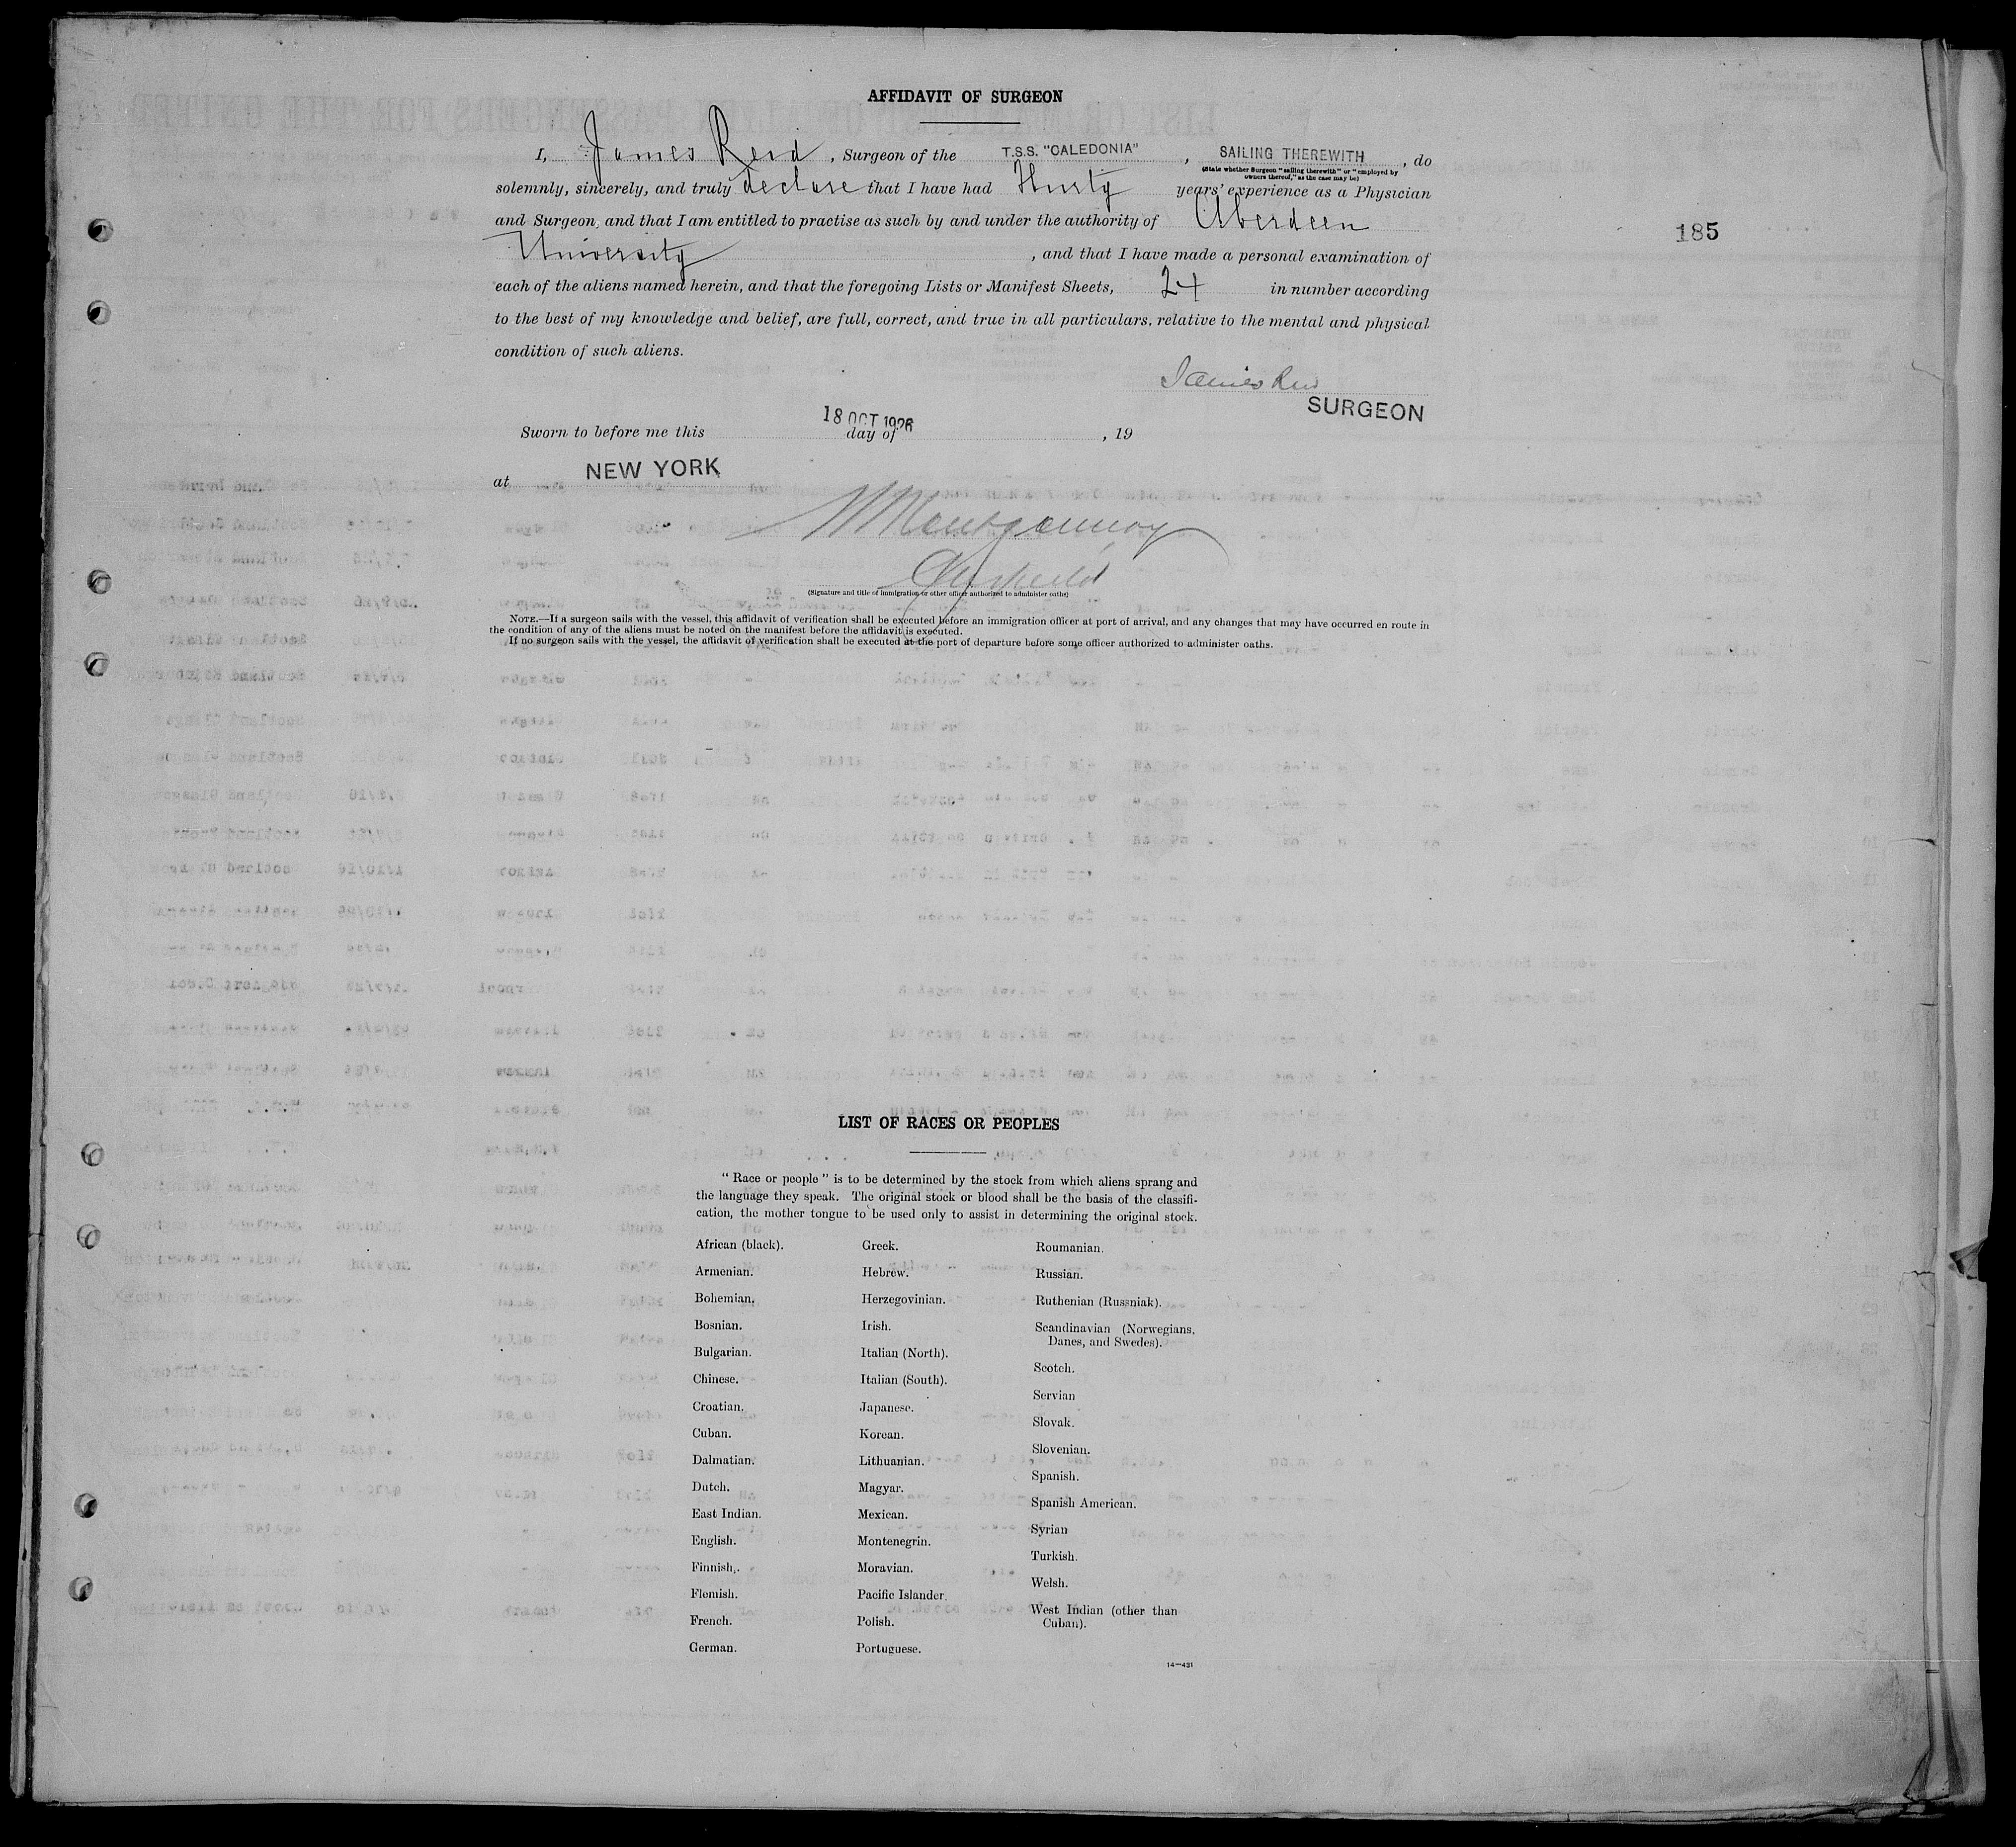 AFFIDAVIT OF SURGEON
I, James Reid, Surgeon of the T.S.S. "CALEDONIA", SAILING THEREWITH, do
(State whether Surgeon "sailing therewith" or "employed by
owners thereof," as the case may be)
solemnly, sincerely, and truly declare that I have had Thirty years' experience as a Physician
and Surgeon, and that I am entitled to practise as such by and under the authority of Aberdeen
University, and that I have made a personal examination of
185
each of the aliens named herein, and that the foregoing Lists or Manifest Sheets, 24 in number according
to the best of my knowledge and belief, are full, correct, and true in all particulars, relative to the mental and physical
condition of such aliens.
James Reid
SURGEON
18 OCT 1926
Sworn to before me this day of , 19
at NEW YORK
Montgomery
(Signature and title of immigration or other officer authorized to administer oaths)
NOTE.—If a surgeon sails with the vessel, this affidavit of verification shall be executed before an immigration officer at port of arrival, and any changes that may have occurred en route in
the condition of any of the aliens must be noted on the manifest before the affidavit is executed.
If no surgeon sails with the vessel, the affidavit of verification shall be executed at the port of departure before some officer authorized to administer oaths.
LIST OF RACES OR PEOPLES
"Race or people" is to be determined by the stock from which aliens sprang and
the language they speak. The original stock or blood shall be the basis of the classifi-
cation, the mother tongue to be used only to assist in determining the original stock.
African (black).
Armenian.
Bohemian.
Bosnian.
Bulgarian.
Chinese.
Croatian.
Cuban.
Dalmatian.
Dutch.
East Indian.
English.
Finnish.
Flemish.
French.
German.
Greek.
Hebrew.
Herzegovinian.
Irish.
Italian (North).
Italian (South).
Japanese.
Korean.
Lithuanian.
Magyar.
Mexican.
Montenegrin.
Moravian.
Pacific Islander.
Polish.
Portuguese.
Roumanian.
Russian.
Ruthenian (Russniak).
Scandinavian (Norwegians,
Danes, and Swedes).
Scotch.
Servian
Slovak.
Slovenian.
Spanish.
Spanish American.
Syrian
Turkish.
Welsh.
West Indian (other than
Cuban).
14—431